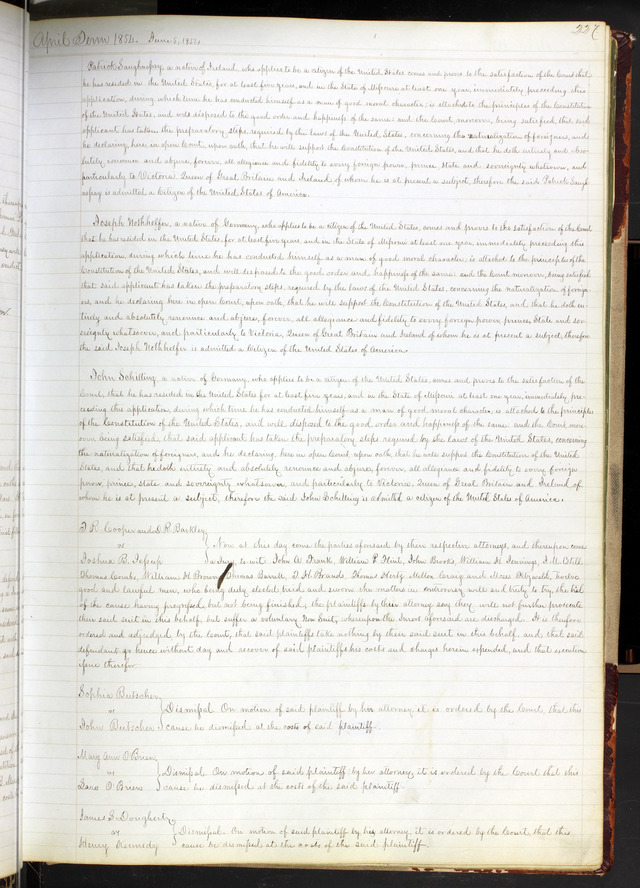 227
April Term 1854. June 5, 1854
Patrick Saughnapsy, a native of Ireland, who applies to be a citizen of the United States comes and proves to the satisfaction of the Court that
he has resided in the United States for at least five years, and in the State of Missouri at least one year, immediately preceding this
application, during which time he has conducted himself as a man of good moral character, is attached to the principles of the Constitution
of the United States, and well disposed to the good order and happiness of the same: and the Court, moreover, being satisfied that said
applicant has taken the preparatory steps, required by the laws of the United States, concerning the naturalization of foreigners, and
he declaring, here in open Court, upon oath, that he will support the Constitution of the United States, and that he doth entirely and abso-
lutely, renounce and abjure, forever, all allegiance and fidelity to every foreign power, prince, state and sovereignty whatsoever, and
particularly to Victoria Queen of Great Britain and Ireland of whom he is at present a subject, therefore the said Patrick Saugh-
napsy is admitted a Citizen of the United States of America.
Joseph Nothhelfer, a native of Germany, who applies to be a citizen of the United States, comes and proves to the satisfaction of the Court
that he has resided in the United States, for at least five years, and in the State of Missouri at least one year, immediately preceding this
application, during which time he has conducted himself as a man of good moral character, is attached to the principles of the
Constitution of the United States, and well disposed to the good order and happiness of the same: and the Court moreover, being satisfied
that said applicant has taken the preparatory steps, required by the laws of the United States, concerning the naturalization of foreign-
ers, and he declaring here in open Court, upon oath, that he will support the Constitution of the United States, and that he doth en-
tirely and absolutely renounce and abjure, forever, all allegiance and fidelity to every foreign power, prince, State and sov-
ereignty whatsoever, and particularly to Victoria, Queen of Great Britain and Ireland of whom he is at present a subject, therefore
the said Joseph Nothhelfer is admitted a Citizen of the United States of America.
John Schilling, a native of Germany, who applies to be a citizen of the United States, comes and proves to the satisfaction of the
Court, that he has resided in the United States for at least five years, and in the State of Missouri at least one year, immediately, pre-
ceding this application, during which time he has conducted himself as a man of good moral character, is attached to the principles
of the Constitution of the United States, and well disposed to the good order and happiness of the same: and the Court more-
over being satisfied, that said applicant has taken the preparatory steps required by the laws of the United States, concerning
the naturalization of foreigners, and he declaring, here in open Court, upon oath, that he will support the Constitution of the United
States, and that he doth entirely and absolutely renounce and abjure, forever, all allegiance and fidelity to every foreign
power, prince, state and sovereignty whatsoever, and particularly to Victoria, Queen of Great Britain and Ireland of
whom he is at present a subject, therefore the said John Schilling is admitted a citizen of the United States of America.
T. R. Cooper and D. R. Barkley
vs
Now at this day come the parties aforesaid by their respective attorneys, and thereupon comes
Joshua B. Jessup
a Jury, to wit, John A. Frank, William P. Flint, John Brooks, William H. Jennings, J. M. Still,
Thomas Combs, William H. Brown, Thomas Barrett, T. H. Brando, Thomas Hertz, Milton Craig and Moses Fitzwald, twelve
good and lawful men, who being duly elected tried and sworn the matters in controversy well and truly to try, the trial
of the cause having progressed but not being finished, the plaintiffs by their attorney say they will not further prosecute
their said suit in this behalf, but suffer a voluntary Non Suit, whereupon the Jurors aforesaid are discharged. It is therefore
ordered and adjudged by the Court, that said plaintiffs take nothing by their said suit in this behalf, and that said
defendant go hence without day and recover of said plaintiffs his costs and charges herein expended, and that execution
issue therefor.
Sophia Butscher
vs
Dismissal. On motion of said plaintiff by her attorney it is ordered by the Court that this
John Butscher
cause be dismissed at the costs of said plaintiff.
Mary Ann O'Brien
vs
Dismissal. On motion of said plaintiff by her attorney, it is ordered by the Court that this
O'Brien
cause be dismissed at the costs of the said plaintiff.
James S. Dougherty
vs
Dismissal. On motion of said plaintiff by his attorney, it is ordered by the Court that this
Henry Kennedy
cause be dismissed at the costs of the said plaintiff.